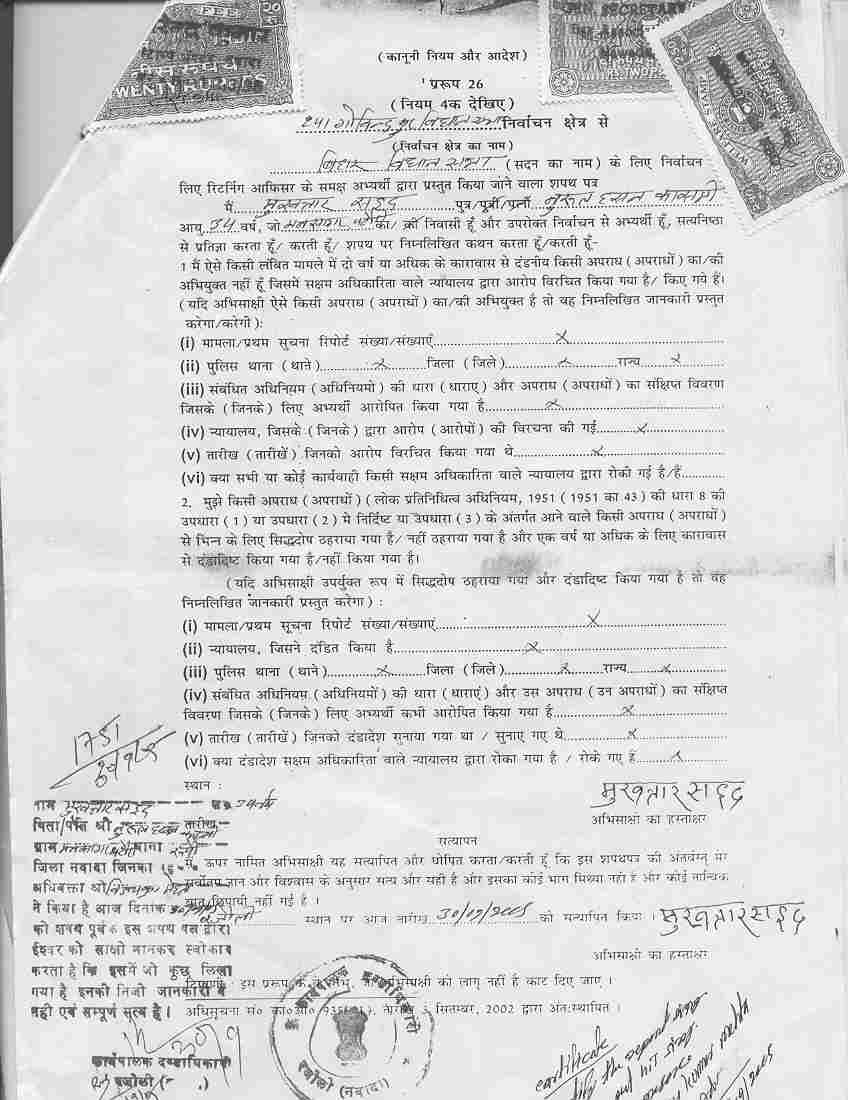 TWENTY RUPEES
(कानूनी नियम और आदेश)
प्ररूप 26
(नियम 4क देखिए)
241 गोविन्दपुर विधान सभा निर्वाचन क्षेत्र से
(निर्वाचन क्षेत्र का नाम)
बिहार विधान सभा (सदन का नाम) के लिए निर्वाचन
लिए रिटर्निंग आफिसर के समक्ष अभ्यर्थी द्वारा प्रस्तुत किया जाने वाला शपथ पत्र
मैं मुखतार सइद पुत्र/पुत्री/पत्नी नुरूल हसन
आयु 34 वर्ष, जो का/ की निवासी हूँ और उपरोक्त निर्वाचन से अभ्यर्थी हूँ, सत्यनिष्ठा
से प्रतिज्ञा करता हूँ/ करती हूँ/ शपथ पर निम्नलिखित कथन करता हूँ/करती हूँ-
1 मैं ऐसे किसी लंबित मामले में दो वर्ष या अधिक के कारावास से दंडनीय किसी अपराध (अपराधों) का/की
अभियुक्त नहीं हूँ जिसमें सक्षम अधिकारिता वाले न्यायालय द्वारा आरोप विरचित किया गया है/ किए गये हैं।
(यदि अभिसाक्षी ऐसे किसी अपराध (अपराधों) का/की अभियुक्त है तो वह निम्नलिखित जानकारी प्रस्तुत
करेगा/करेगी):
(i) मामला/प्रथम सुचना रिपोर्ट संख्या/संख्याएँ x
(ii) पुलिस थाना (थाने) x जिला (जिले) x राज्य x
(iii) संबंधित अधिनियम (अधिनियमो) की धारा (धाराए) और अपराध (अपराधों) का संक्षिप्त विवरण
जिसके (जिनके) लिए अभ्यर्थी आरोपित किया गया है x
(iv) न्यायालय, जिसके (जिनके) द्वारा आरोप (आरोपों) की विरचना की गई x
(v) तारीख (तारीखें) जिनको आरोप विरचित किया गया थे x
(vi) क्या सभी या कोई कार्यवाही किसी सक्षम अधिकारिता वाले न्यायालय द्वारा रोकी गई है/हैं
2. मुझे किसी अपराध (अपराधों) (लोक प्रतिनिधित्व अधिनियम, 1951 (1951 का 43) की धारा 8 की
उपधारा (1) या उपधारा (2) मे निर्दिष्ट या उपधारा (3) के अंतर्गत आने वाले किसी अपराध (अपराधों)
से भिन्न के लिए सिद्धदोष ठहराया गया है/ नहीं ठहराया गया है और एक वर्ष या अधिक के लिए कारावास
से दंडादिष्ट किया गया है/नहीं किया गया है।
(यदि अभिसाक्षी उपर्युक्त रूप में सिद्धदोष ठहराया गया और दंडादिष्ट किया गया है तो वह
निम्नलिखित जानकारी प्रस्तुत करेगा) :
(i) मामला/प्रथम सूचना रिपोर्ट संख्या/संख्याएं x
(ii) न्यायालय, जिसने दंडित किया है x
(iii) पुलिस थाना (थाने) x जिला (जिले) x राज्य x
(iv) संबंधित अधिनियम (अधिनियमों) की धारा (धाराएं) और उस अपराध (उन अपराधों) का संक्षिप्त
विवरण जिसके (जिनके) लिए अभ्यर्थी कभी आरोपित किया गया है x
(v) तारीख (तारीखें) जिनको दंडादेश सुनाया गया था / सुनाए गए थे x
(vi) क्या दंडादेश सक्षम अधिकारिता वाले न्यायालय द्वारा रोका गया है / रोके गए हैं x
स्थान :
1751
मुखतार सइद
अभिसाक्षी का हस्ताक्षर
नाम मुखतार सइद
पिता/पति श्री नुरूल हसन
तारीख
ग्राम थाना
जिला नवादा जिनका
अधिवक्ता श्री
ने किया है आज दिनांक
को शपथ पूर्वक इस शपथ पत्र द्वारा
ईश्वर को साक्षी मानकर स्वीकार
करता है कि इसमें जो कुछ लिखा
गया है इनकी निजी जानकारी में
सही एवं सम्पूर्ण सत्य है।
सत्यापन
मैं, ऊपर नामित अभिसाक्षी यह सत्यापित और घोषित करता/करती हूँ कि इस शपथपत्र की अंतर्वस्तु मेरे
सर्वोत्तम ज्ञान और विश्वास के अनुसार सत्य और सही है और इसका कोई भाग मिथ्या नहीं है और कोई तात्विक
बात छिपायी नहीं गई है ।
रजौली स्थान पर आज तारीख 30/09/2005 को सत्यापित किया । मुखतार सइद
अभिसाक्षी का हस्ताक्षर
टिप्पणी : इस प्ररूप के जो अभिसाक्षी को लागू नहीं है काट दिए जाए ।
अधिसूचना सं० का०आ० 935 तारीख 3 सितम्बर, 2002 द्वारा अंतःस्थापित ।
कार्यपालक दण्डाधिकारी
रजौली
कार्यपालक दण्डाधिकारी
रजौली (नवादा)
certificate